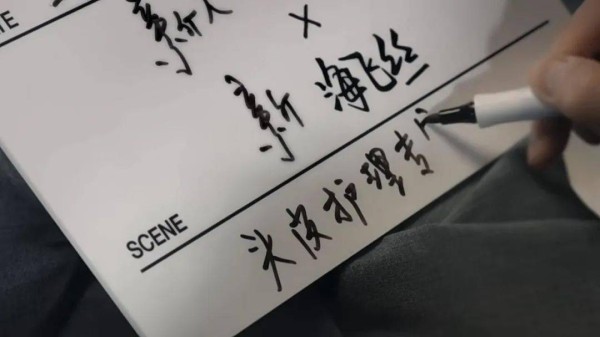 新人
×
新 海飞丝
SCENE
头皮护理专